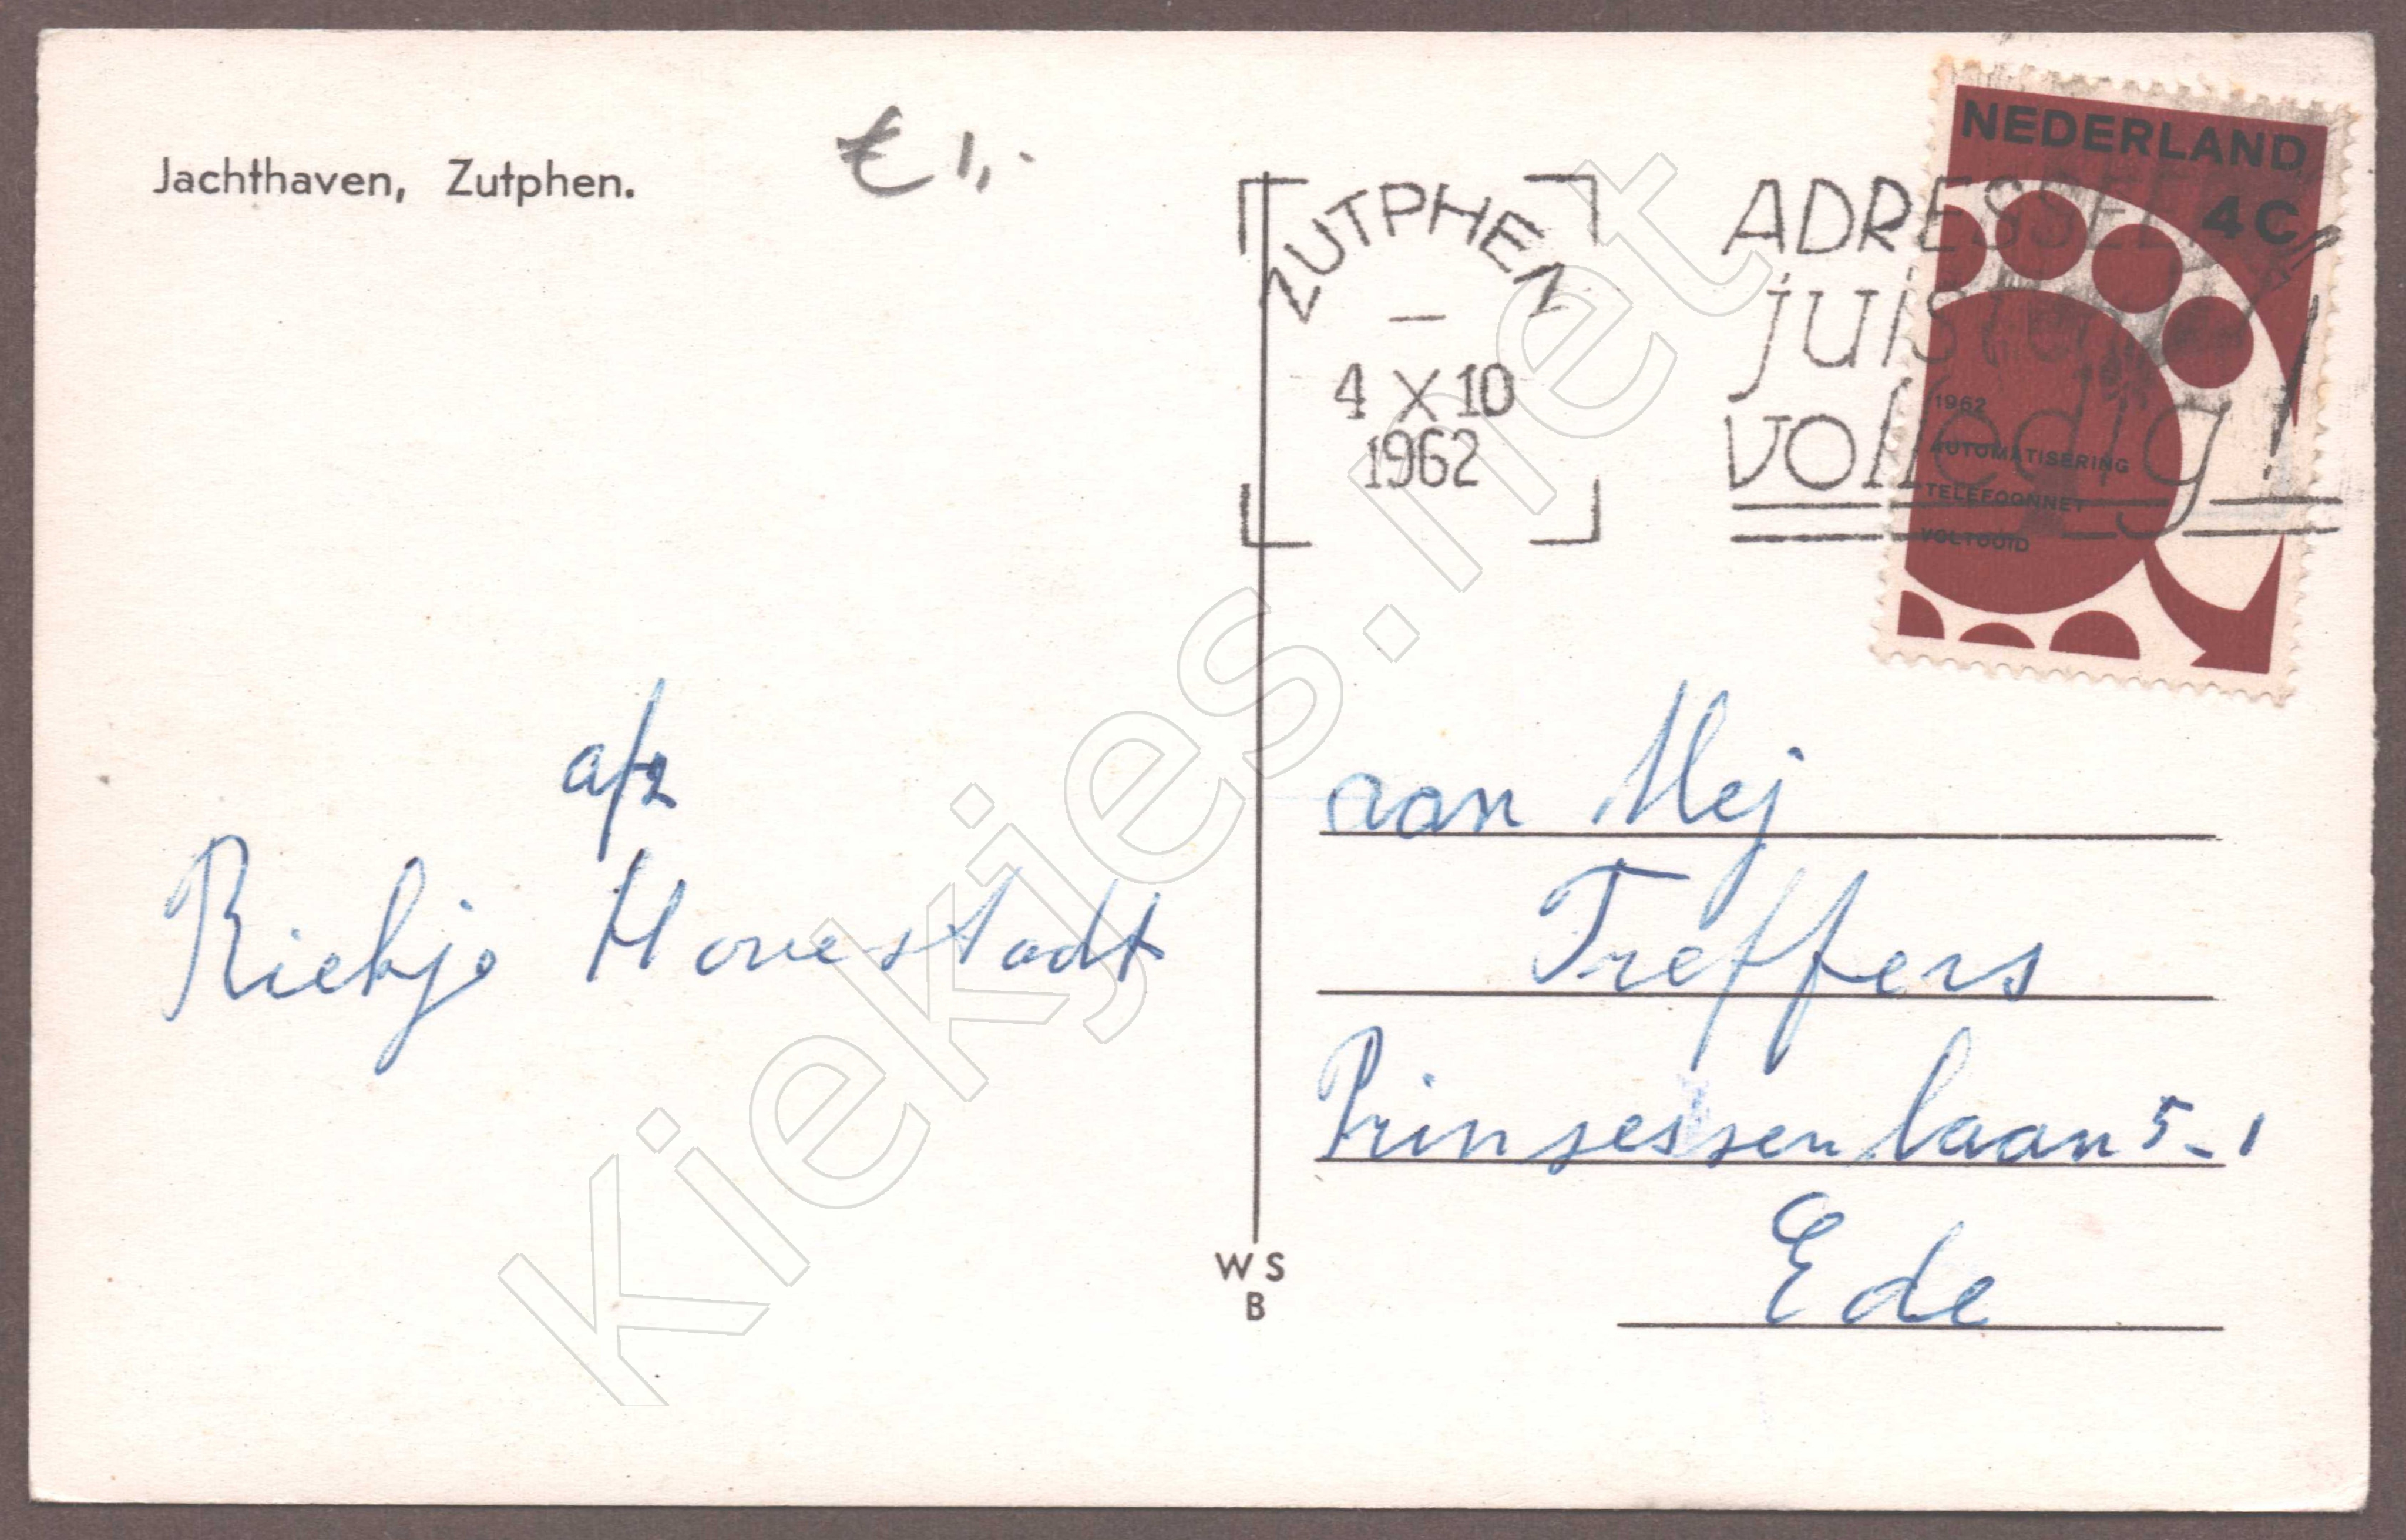 Jachthaven, Zutphen.
€ 1,-
ZUTPHEN
4 X 10
1962
ADRESSEER
juist en
volledig!
NEDERLAND
4C
1962
AUTOMATISERING
TELEFOONNET
VOLTOOID
afz
Riekje Hovestadt
aan Mej
Treffers
Prinsessenlaan 5-1
Ede
W S
B
Kiekjes.net